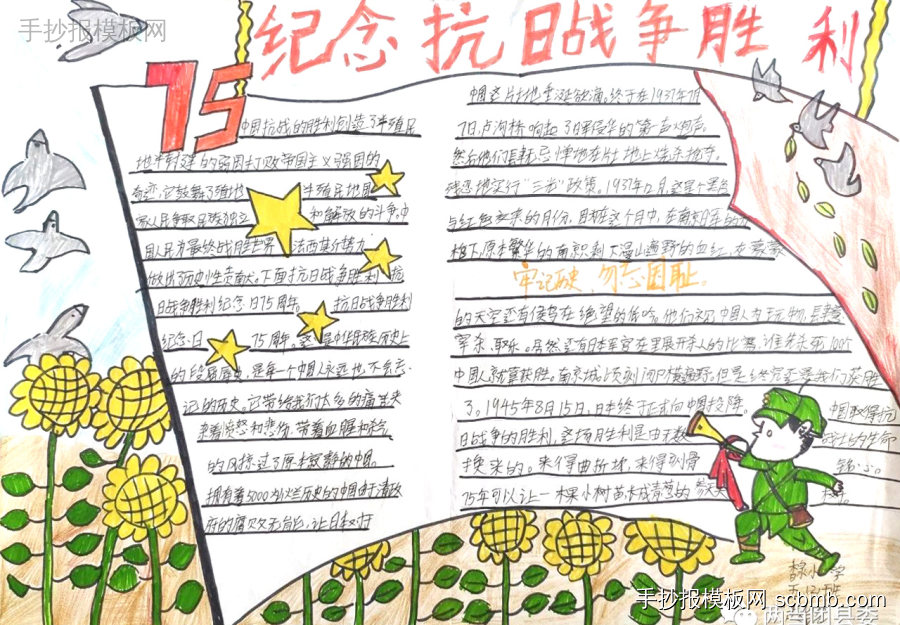 手抄报模板网
纪念抗日战争胜利
75
中国抗战的胜利创造了半殖民
地半封建的弱国打败帝国主义强国的
奇迹,它鼓舞了殖地 半殖民地国
家人民争取民族独立 和解放的斗争,中
国人民为最终战胜世界 法西斯势力
做出历史性贡献。下面抗日战争胜利 抗
日战争胜利纪念日75周年。 抗日战争胜利
纪念日 75周年。这是中华民族历史上
的段屈辱史,是每一个中国人永远也不会忘
记的历史。它带给我们太多的痛苦来
来着愤怒和悲伤,带着血腥和
的风掠过了原本寂静的中国。
拥有着5000 历史的中国由于清政
府的腐败无能,让日本对
中国这片土地垂涎欲滴。终于在1937年7月
7日,卢沟桥响起了日军侵华的第一声炮声。
然后他们肆无忌惮地在 地上烧杀抢夺,
残忍地实行“三光”政策。1937年12月,这是个黑色
与红色交织的月份,因为在这个月中,在南京日军的
下,原本繁华的南京剩下漫山遍野的血红,灰蒙蒙
牢记历史 勿忘国耻。
的天空还有侯鸟在绝望的低吟。他们视中国人为玩物,肆意
军杀、取乐。居然还有日本军官在里展开杀人的比赛,谁先杀死100个
中国人就算获胜。南京城顷刻间尸横遍野。但是终究还是我们获胜
了。1945年8月15日,日本终于正式向中国投降。 中国取得抗
日战争的胜利,这场胜利是由无数 战士的生命
换来的。来得曲折坎,来得刻骨 铭心。
75年可以让一棵小树苗长成青葱的参天大 树。
小学
手抄报模板网 scbmb.com
两当团县委